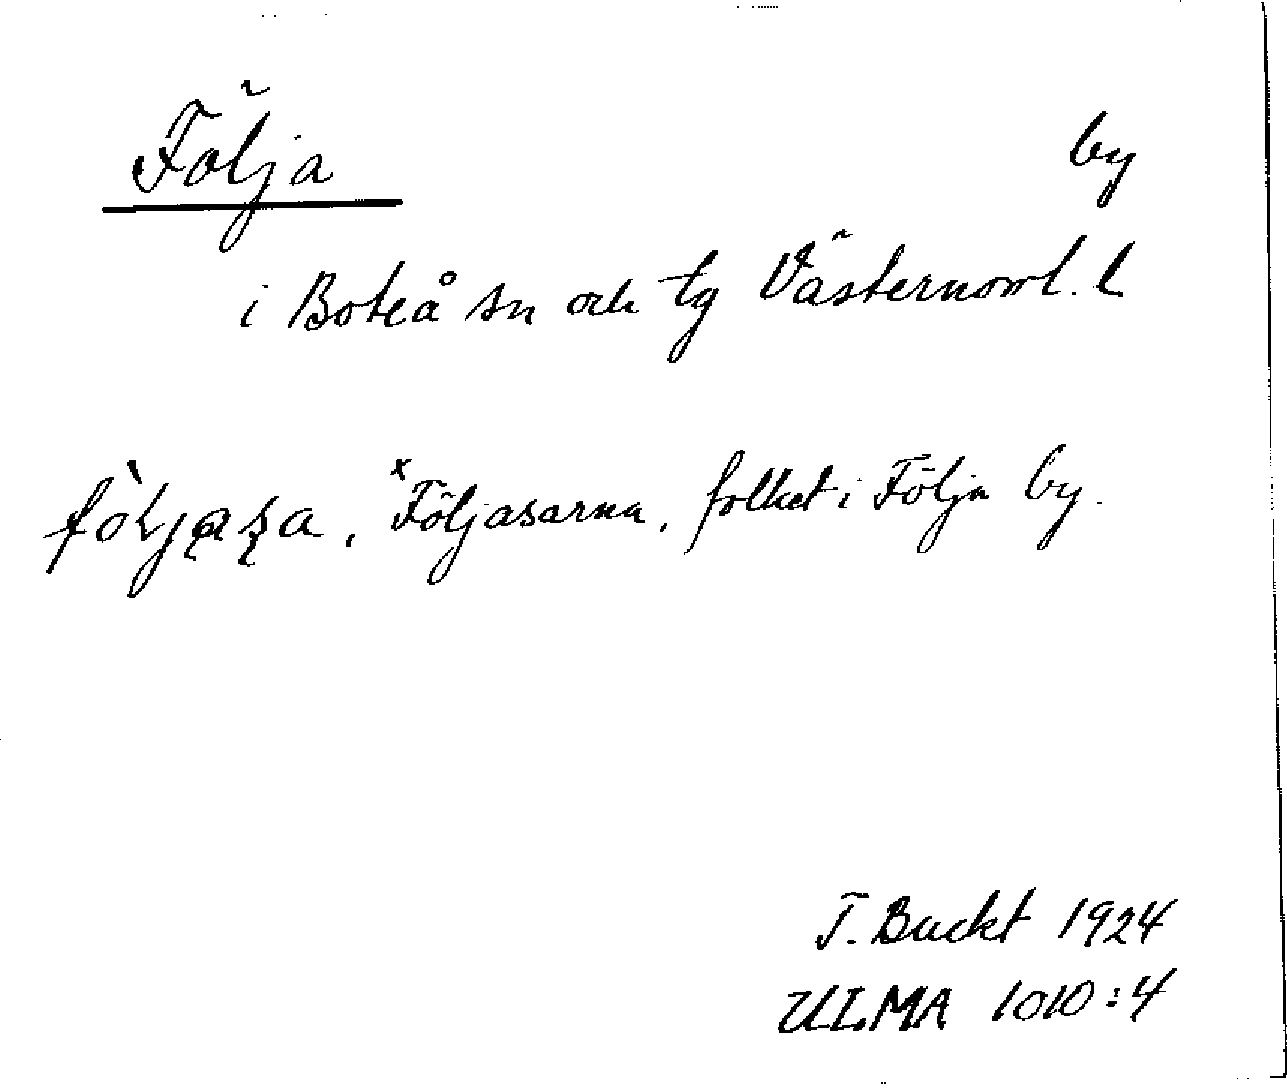 Följa by
i Boteå sn och tg Västernorrl. l
följasa, ˣFöljasarna, folket i Följa by.
T. Buckt 1924
ULMA 1010:4